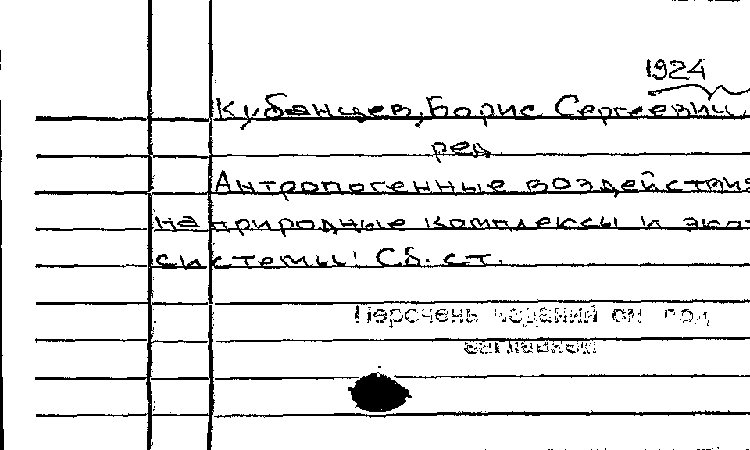 1924
Кубанцев, Борис Сергеевич,
ред
Антропогенные воздействия
на природные комплексы и эко-
системы: Сб. ст.
Перечень изданий см. под
заглавием